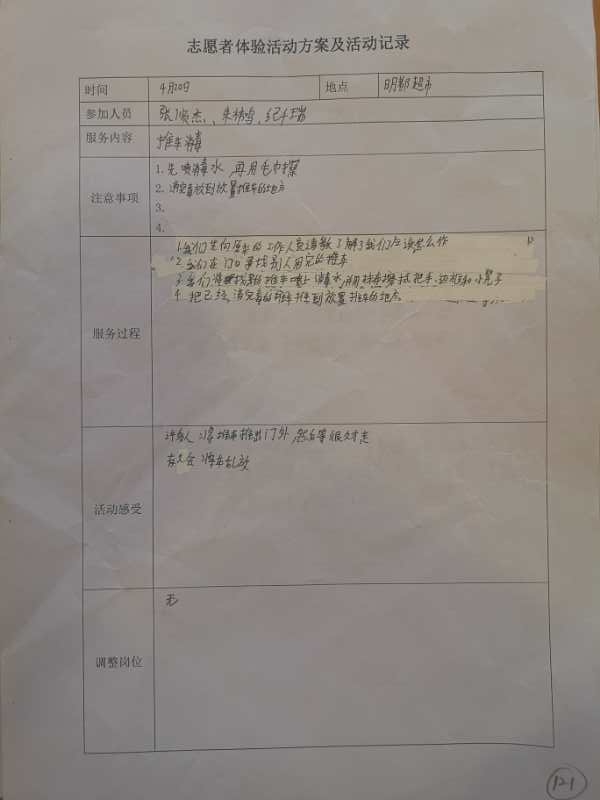 志愿者体验活动方案及活动记录
时间 4月20日 地点 明郡超市
参加人员
服务内容 推车消毒
注意事项
1. 先喷消毒水 再用毛巾擦
2. 消完毒放到放置推车的地方
3.
4.
服务过程
1.我们先向原来的工作人员请教了解了我们应该怎么作
2.我们在门口寻找别人用完的推车
3.我们将找到的推车喷上消毒水,用抹布擦拭把手、边框和小凳子
4.把已经消完毒的推车推到放置推车的地点
活动感受
许多人将推车推出门外 然后等很久才走
有人会将车乱放
调整岗位 无
121